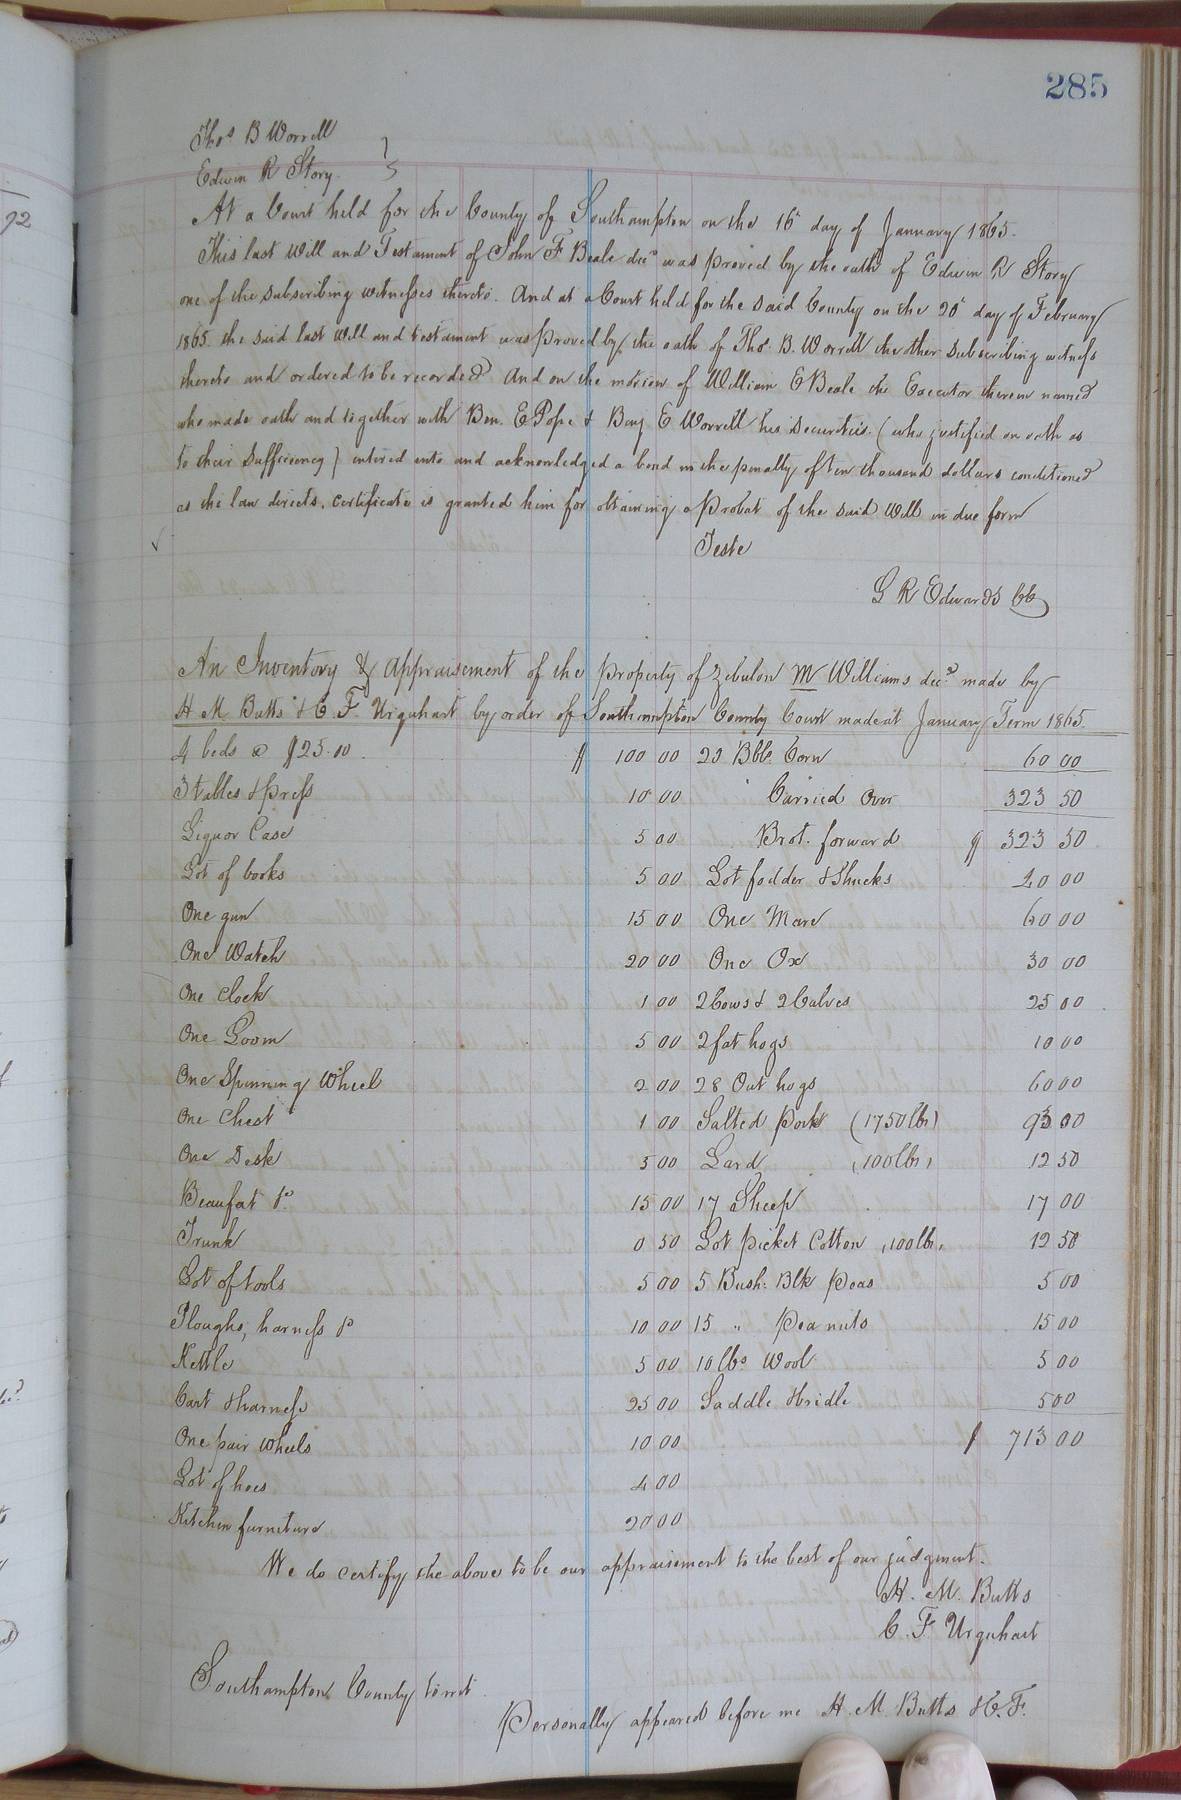 285
Thos B Worrell
Edwin R Story
At a Court held for the County of Southampton on the 16th day of January 1865.
This last Will and Testament of John F Beale decd was proved by the oath of Edwin R Story
one of the subscribing witnesses thereto. And at a Court held for the said County on the 20th day of February
1865 the said last Will and testament was proved by the oath of Thos B. Worrell the other subscribing witness
thereto and ordered to be recorded And on the motion of William E Beale the Executor therein named
who made oath and together with Ben. E Pope & Benj E Worrell his securities (who justified on oath as
to their sufficiency) entered into and acknowledged a bond in the penalty of ten thousand dollars conditioned
as the law directs, certificate is granted him for obtaining a Probat of the said Will in due form
Teste
L R Edwards CC
An Inventory & appraisement of the property of Zebulon M Williams decd made by
H M Butts & C. F. Urquhart by order of Southampton County Court made at January Term 1865.
4 beds @ $25.00 $ 100 00
3 tables & press 10 00
Liquor Case 5 00
Lot of books 5 00
One gun 15 00
One Watch 20 00
One clock 1 00
One Loom 5 00
One Spinning Wheel 2 00
One Chest 1 00
One Desk 5 00
Beaufat 15 00
Trunk 0 50
Lot of tools 5 00
Ploughs, harness 10 00
Kettle 5 00
Cart & harness 25 00
One pair wheels 10 00
Lot of hoes 4 00
Kitchen furniture 20 00
20 Bbls. Corn 60 00
Carried Over 323 50
Brot. forward $ 323 50
Lot fodder & Shucks 40 00
One Mare 60 00
One Ox 30 00
2 Cows & 2 Calves 25 00
2 fat hogs 10 00
28 Out hogs 60 00
Salted Pork (1750 lbs) 93 00
Lard (100 lbs) 12 50
17 Sheep 17 00
Lot picket Cotton (100 lbs) 12 50
5 Bush. Blk Peas 5 00
15 " Pea nuts 15 00
10 lbs Wool 5 00
Saddle & bridle 5 00
$ 713 00
We do certify the above to be our appraisement to the best of our judgment.
H. M. Butts
C. F. Urquhart
Southampton County to wit
Personally appeared before me H. M. Butts & C. F.
92